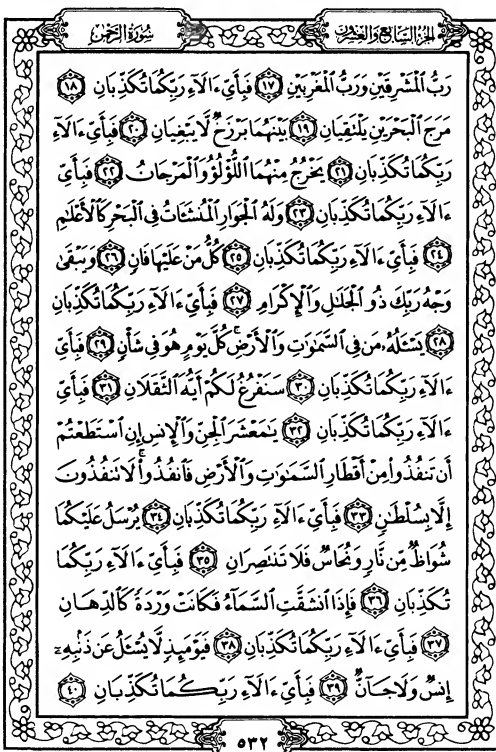 سُورَةُ الرَّحْمَٰن
الجُزْءُ السَّابِعُ وَالعِشْرُونَ
رَبُّ ٱلْمَشْرِقَيْنِ وَرَبُّ ٱلْمَغْرِبَيْنِ ١٧ فَبِأَيِّ ءَالَآءِ رَبِّكُمَا تُكَذِّبَانِ ١٨
مَرَجَ ٱلْبَحْرَيْنِ يَلْتَقِيَانِ ١٩ بَيْنَهُمَا بَرْزَخٌ لَّا يَبْغِيَانِ ٢٠ فَبِأَيِّ ءَالَآءِ
رَبِّكُمَا تُكَذِّبَانِ ٢١ يَخْرُجُ مِنْهُمَا ٱللُّؤْلُؤُ وَٱلْمَرْجَانُ ٢٢ فَبِأَيِّ
ءَالَآءِ رَبِّكُمَا تُكَذِّبَانِ ٢٣ وَلَهُ ٱلْجَوَارِ ٱلْمُنشَـَٔاتُ فِى ٱلْبَحْرِ كَٱلْأَعْلَٰمِ
٢٤ فَبِأَيِّ ءَالَآءِ رَبِّكُمَا تُكَذِّبَانِ ٢٥ كُلُّ مَنْ عَلَيْهَا فَانٍ ٢٦ وَيَبْقَىٰ
وَجْهُ رَبِّكَ ذُو ٱلْجَلَٰلِ وَٱلْإِكْرَامِ ٢٧ فَبِأَيِّ ءَالَآءِ رَبِّكُمَا تُكَذِّبَانِ
٢٨ يَسْـَٔلُهُۥ مَن فِى ٱلسَّمَٰوَٰتِ وَٱلْأَرْضِ ۚ كُلَّ يَوْمٍ هُوَ فِى شَأْنٍ ٢٩ فَبِأَيِّ
ءَالَآءِ رَبِّكُمَا تُكَذِّبَانِ ٣٠ سَنَفْرُغُ لَكُمْ أَيُّهَ ٱلثَّقَلَانِ ٣١ فَبِأَيِّ
ءَالَآءِ رَبِّكُمَا تُكَذِّبَانِ ٣٢ يَٰمَعْشَرَ ٱلْجِنِّ وَٱلْإِنسِ إِنِ ٱسْتَطَعْتُمْ
أَن تَنفُذُوا۟ مِنْ أَقْطَارِ ٱلسَّمَٰوَٰتِ وَٱلْأَرْضِ فَٱنفُذُوا۟ ۚ لَا تَنفُذُونَ
إِلَّا بِسُلْطَٰنٍ ٣٣ فَبِأَيِّ ءَالَآءِ رَبِّكُمَا تُكَذِّبَانِ ٣٤ يُرْسَلُ عَلَيْكُمَا
شُوَاظٌ مِّن نَّارٍ وَنُحَاسٌ فَلَا تَنتَصِرَانِ ٣٥ فَبِأَيِّ ءَالَآءِ رَبِّكُمَا
تُكَذِّبَانِ ٣٦ فَإِذَا ٱنشَقَّتِ ٱلسَّمَآءُ فَكَانَتْ وَرْدَةً كَٱلدِّهَانِ
٣٧ فَبِأَيِّ ءَالَآءِ رَبِّكُمَا تُكَذِّبَانِ ٣٨ فَيَوْمَئِذٍ لَّا يُسْـَٔلُ عَن ذَنۢبِهِۦٓ
إِنسٌ وَلَا جَآنٌّ ٣٩ فَبِأَيِّ ءَالَآءِ رَبِّكُمَا تُكَذِّبَانِ ٤٠
٥٣٢